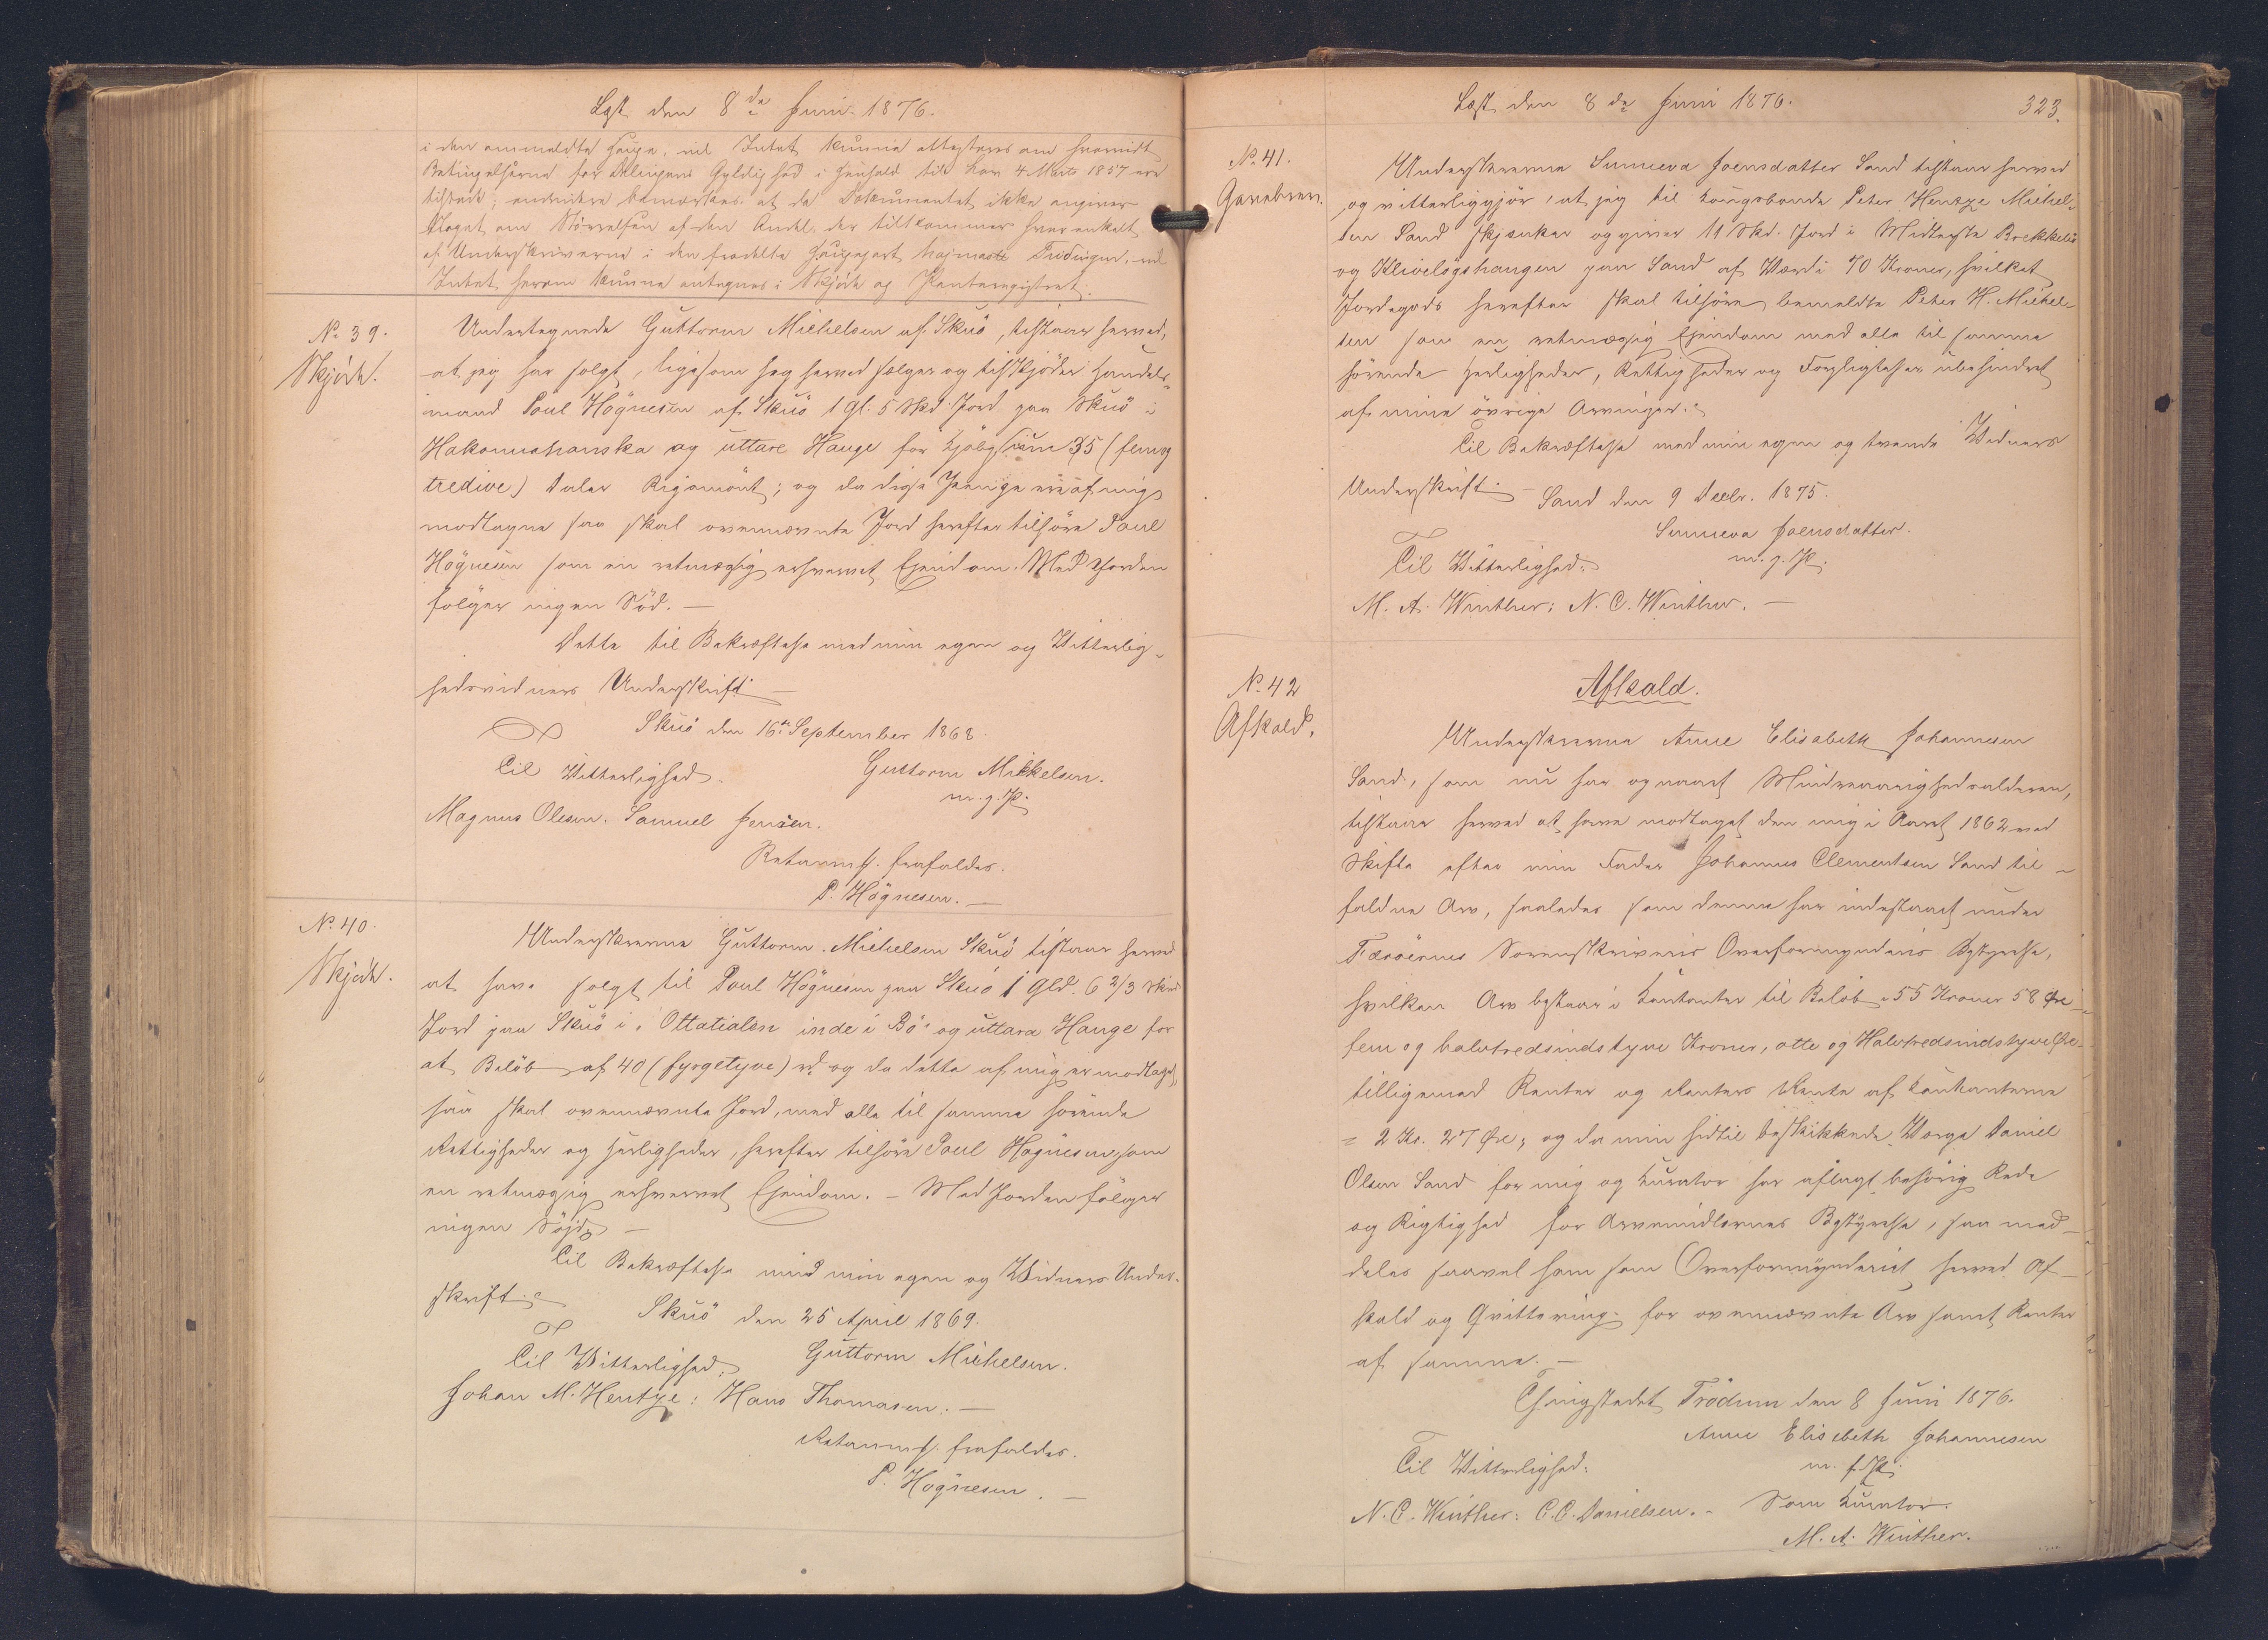 Læst den 8de Juni 1876.
i den anmeldte Hauge, vil Intet kunne attesteres om hvorvidt
Betingelserne for Delingens Gyldighed i Henhold til Lov 4 Marts 1857 ere
tilstede; endvidere bemærkes at da Dokumentet ikke angiver
Noget om Størrelsen af den Andel, der tilkommer hver enkelt
af Underskriverne i den fradelte Haugepart, vil
Intet herom kunne antegnes i Skjøde og Panteregistret.
No 39.
Skjøde.
Undertegnede Guttorm Michelsen af Skuö, tilstaar herved,
at jeg har solgt, ligesom jeg herved sælger og tilskjöder Handels-
mand Poul Högnesen af Skuö 1 Gl: 5 Skd: Jord paa Skuö i
Hakonnahanska og uttare Hauge for Kjöbesum 35 (fem og
tredive) Daler Rigsmönt; og da disse Penge ere af mig
modtagne saa skal ovennævnte Jord herefter tilhöre Poul
Högnesen som en retmæssig erhvervet Ejendom. Med Jorden
fölger ingen Söd. —
Dette til Bekræftelse med min egen og Vitterlig-
hedsvidners Underskrift —
Skuö den 16de September 1868.
Til Vitterlighed. Guttorm Mikkelsen.
m. g. P.
Magnus Olesen. Samuel Jensen.
Retaarnss. frafaldes.
P. Högnesen. —
No 40.
Skjøde.
Underskrevne Guttorm Michelsen Skuö tilstaar herved
at have solgt til Poul Högnesen paa Skuö 1 Gld. 6 2/3 Skind
Jord paa Skuö i „Ottatialen inde i Bö“ og uttara Hauge for
et Belöb af 40 (fyrgetyve) rd og da dette af mig er modtaget,
saa skal ovennævnte Jord, med alle til samme hörende
Rettigheder og Herligheder, herefter tilhöre Poul Högnesen som
en retmæssig erhvervet Ejendom. — Med Jorden fölger
ingen Söjd —
Til Bekræftelse med min egen og Vidners Under-
skrift. Skuö den 25 April 1869.
Til Vitterlighed: Guttorm Michelsen.
Johan M. Hentze: Hans Thomasen. —
Retaarnss. frafaldes.
P. Högnesen. —
Læst den 8de Juni 1876. 323.
No 41.
Gavebrev.
Underskrevne Sunneva Joensdatter Sand tilstaar herved
og vitterliggjör, at jeg til Kongsbonde Peter Hentze Michel-
sen Sand skjænker og giver 11 Skd. Jord i Midterste Brekkebö
og Klivelögshaugen paa Sand af Værdi 70 Kroner, hvilket
Jordegods herefter skal tilhöre bemeldte Peter H. Michel-
sen som en retmæssig Ejendom med alle til samme
hörende Herligheder, Rettigheder og Forpligtelser ubehindret
af mine övrige Arvinger.
Til Bekræftelse med min egen og tvende Vidners
Underskrift. — Sand den 9 Decbr. 1875.
Sunneva Joensdatter.
m. g. P.
Til Vitterlighed:
M. A. Winther: N. C. Winther. —
No 42
Afkald.
Afkald.
Underskrevne Anne Elisabeth Johannesen
Sand, som nu har opnaaet Mindreaarighedsalderen,
tilstaar herved at have modtaget den mig i Aaret 1862 ved
Skifte efter min Fader Johannes Clementsen Sand til-
faldne Arv, saaledes som denne har indestaaet under
Færöernes Sorenskriveris Overformynderis Bestyrelse,
hvilken Arv bestaar i Kontanter til Belöb 55 Kroner 58 Øre
fem og halvtredsindstyve Kroner, otte og Halvtredsindstyve Øre
tilligemed Renter og Renters Rente af Kontanterne
= 2 Kr. 27 Øre; og da min hidtil beskikkede Værge Daniel
Olsen Sand for mig og Kurator har aflagt behörig Rede
og Rigtighed for Arvemidlernes Bestyrelse, saa med-
deles saavel ham som Overformynderiet herved Af-
kald og Qvittering for ovennævnte Arv samt Renter
af samme. —
Thingstedet Trödum den 8 Juni 1876.
Anne Elisebeth Johannesen
m. f. P.
Til Vitterlighed:
N. C. Winther: C. C. Danielsen. — Som Kurator.
M. A. Winther.